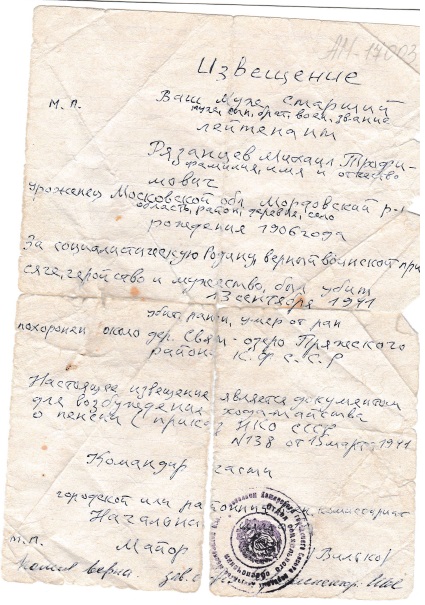 АМ-17003
Извещение
м.п. Ваш муж старший
муж, сын, брат, воен. звание
лейтенант
Рязанцев Михаил Трофи-
фамилия, имя и отчество
мович
уроженец Московской обл. Мордовский р-н
область, район, деревня, село
рождения 1906 года
За социалистическую Родину, верный воинской при
сяге, геройство и мужество, был убит
13 сентября 1941
убит, ранен, умер от ран
похоронен около дер. Свят-озеро Пряжского
района К.Ф.С.С.Р
Настоящее извещение является документом
для возбуждения ходатайства
о пенсии (приказ НКО СССР
N138 от 15 март-1941
Командир части
городской или районный комиссариат
Майор
м.п.
Копия верна. Зав.